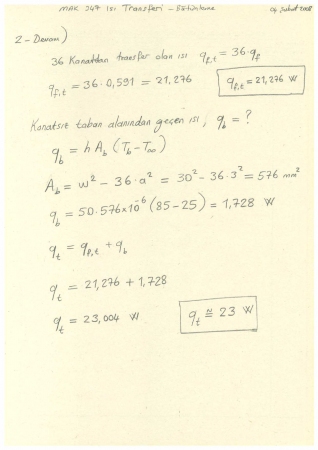 MAK 347 Isı Transferi - Bütünleme 04 Şubat 2008
2 - Devam)
36 Kanattan transfer olan ısı q_f,t = 36·q_f
q_f,t = 36·0,591 = 21,276
q_f,t = 21,276 W
Kanatsız taban alanından geçen ısı, q_b = ?
q_b = h A_b (T_b - T_∞)
A_b = w² - 36·a² = 30² - 36·3² = 576 mm²
q_b = 50·576×10⁻⁶ (85-25) = 1,728 W
q_t = q_f,t + q_b
q_t = 21,276 + 1,728
q_t = 23,004 W
q_t ≅ 23 W